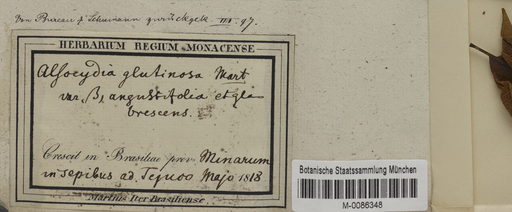 Von Bureau & Schumann zurückgek. III. 97.
HERBARIUM REGIUM MONACENSE
Alsocydia glutinosa Mart
var. β, angustifolia et gla
brescens.
Crescit in Brasiliae prov. Minarum
in sepibus ad. Tejuco Majo 1818
Martius Iter Brasiliense.
Botanische Staatssammlung München
M-0086348